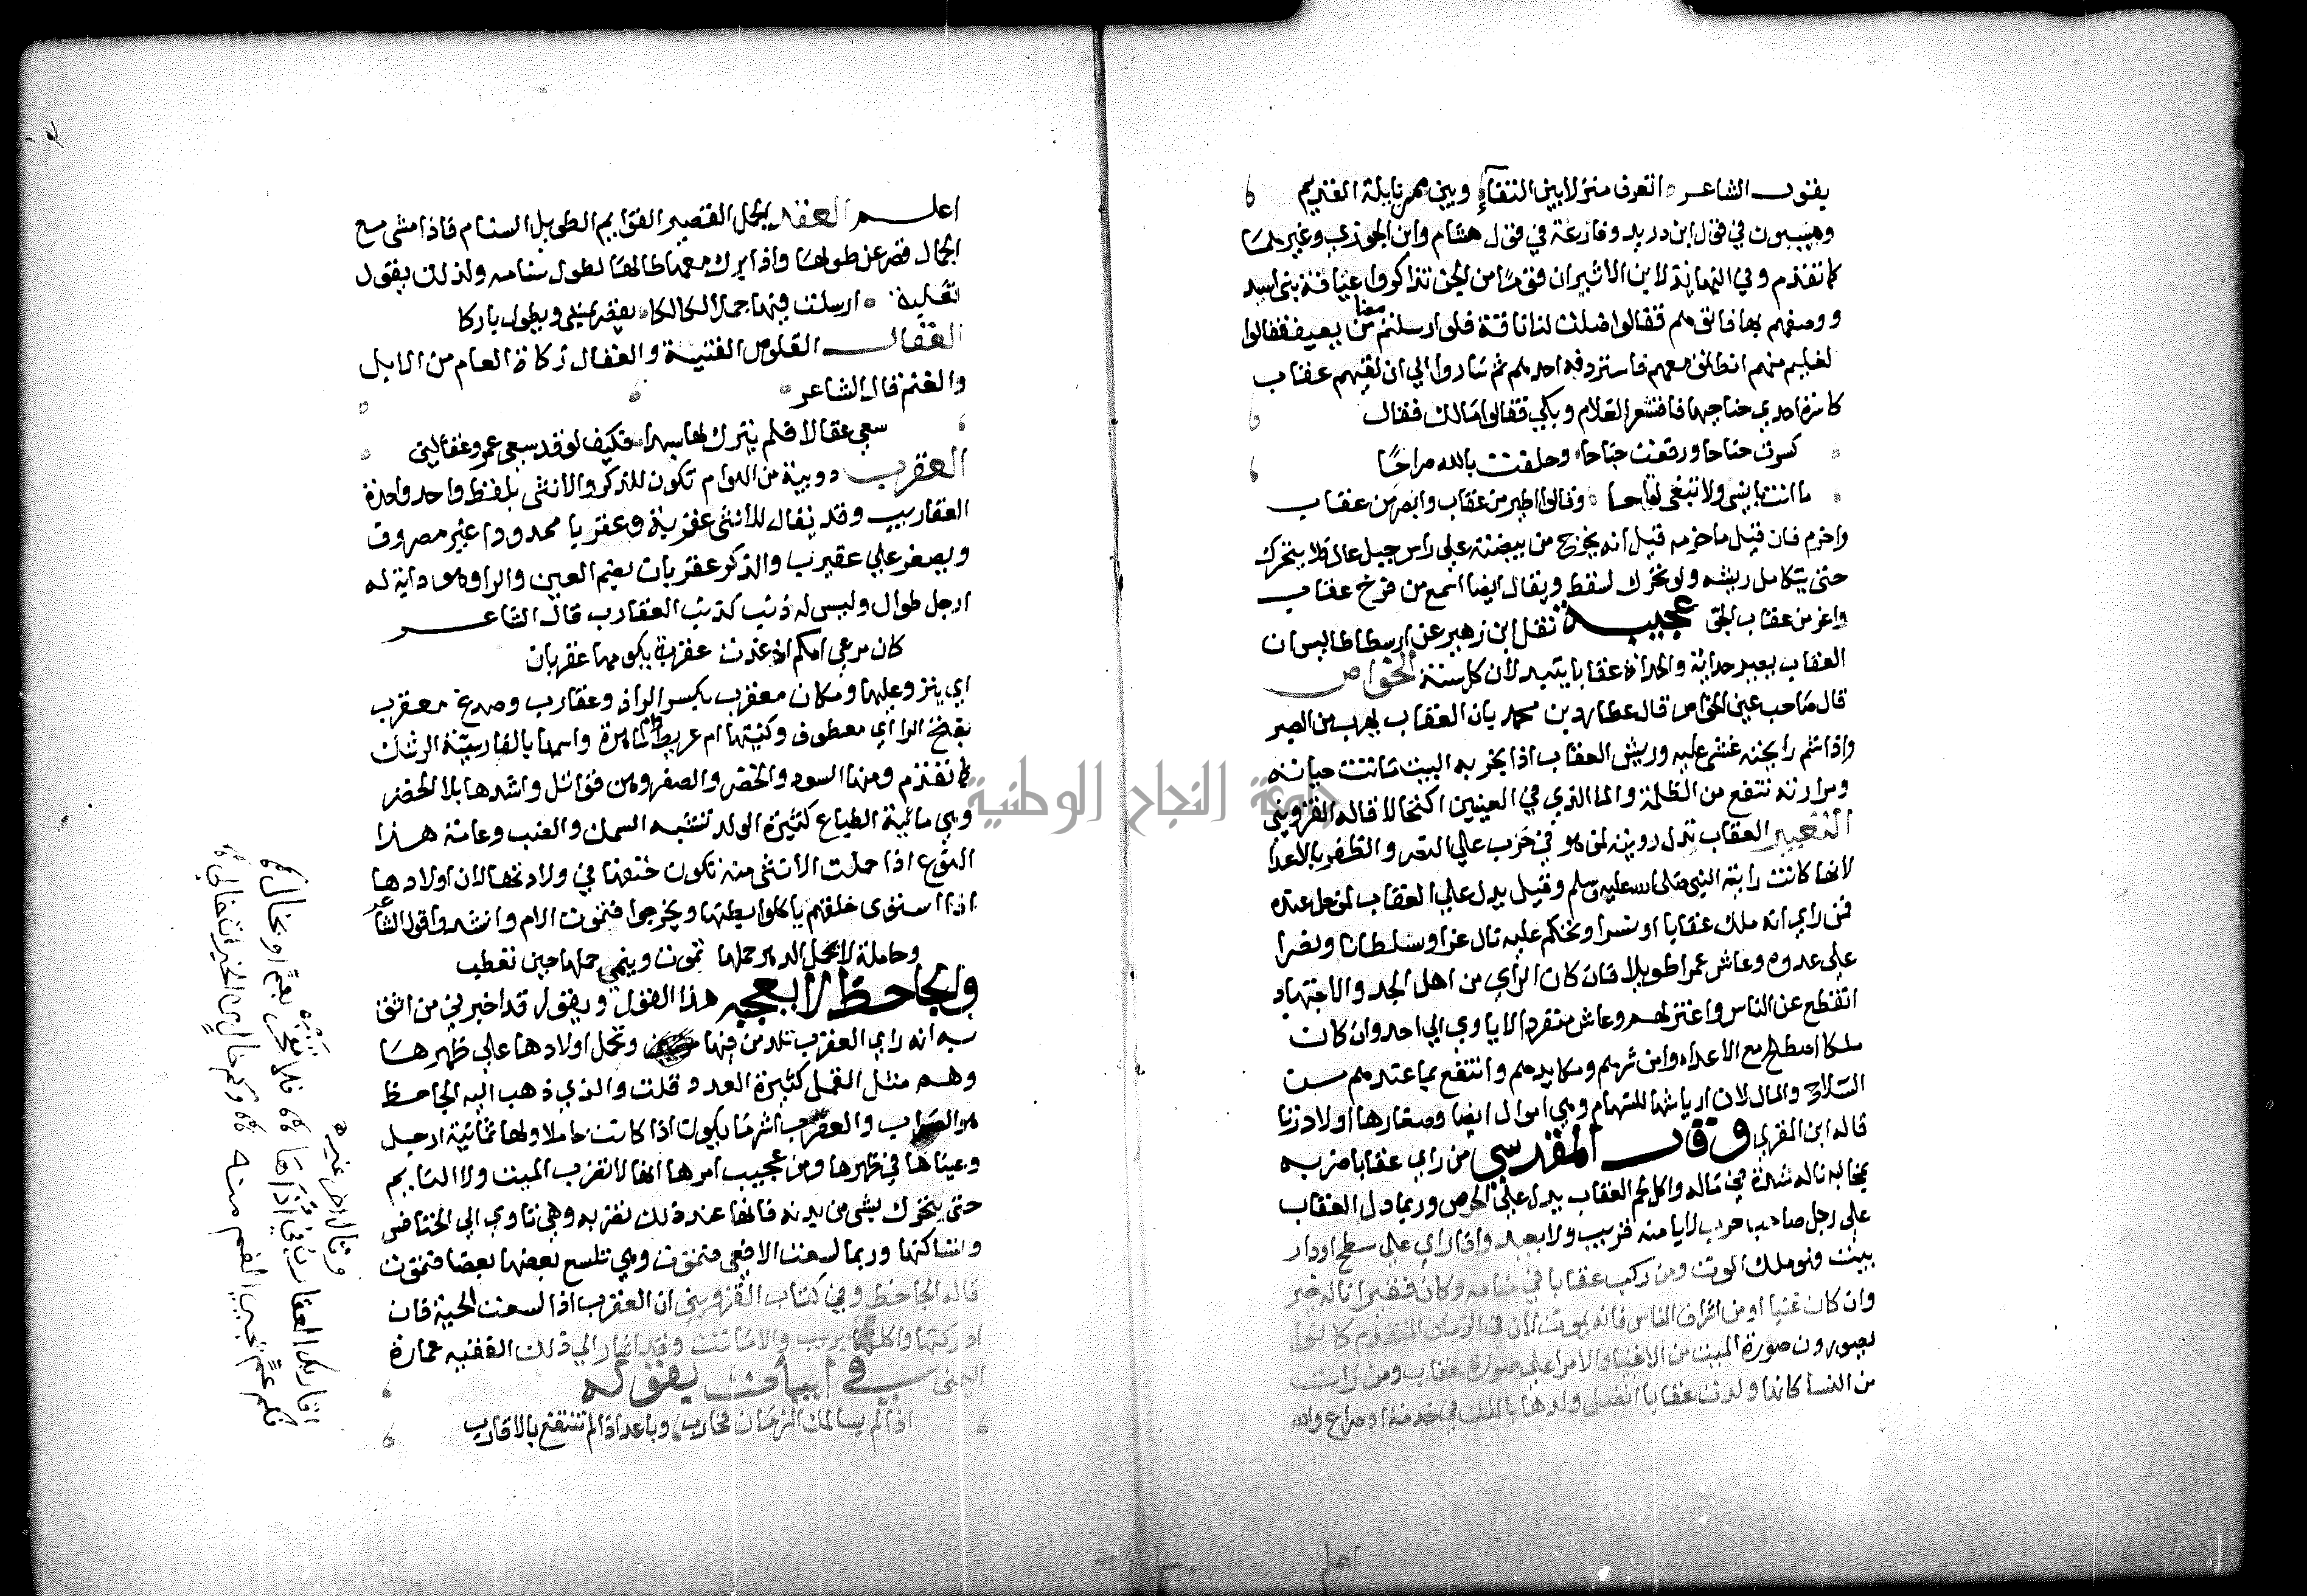 يقول الشاعر اتعرف منزلا بين النقاء وبين ممر نابلة القديم
في قول ابن دريد وقارعة في قول هشام وابن الجوزي وغيرهما
كما تقدم وفي النهاية لابن الاثير ان قوما من الجن تذاكروا عيافة بني اسد
ووصفهم بها فاتوهم فقالوا ضلت لنا ناقة فلو ارسلتم معنا من يعيف فقالوا
لغليم منهم انطلق معهم فاستردفه احدهم ثم ساروا الي ان لقيهم عقاب
كاسرة احدي جناحيها فاقشعر الغلام وبكي فقالوا مالك فقال
كسرت جناحا ورفعت جناحا وحلفت بالله صراحا
ما انت بانسي ولا تبغي لقاحا وقالوا اطير من عقاب وابصر من عقاب
واحزم فان قيل ما حزمه قيل انه يخرج من بيضته علي راس جبل عال فلا يتحرك
حتي يتكامل ريشه ولو تحرك لسقط ويقال ايضا اسمع من فرخ عقاب
واعز من عقاب الجو عجيبة نقل ابن زهير عن ارسطاطاليس ان
العقاب يصير حداية والحداة عقابا يتبدلان كل سنة الخواص
قال صاحب عين الخواص قال عطارد بن محمد بان العقاب يهرب من الصبر
واذا شم رايحته غشي عليه وريش العقاب اذا بخر به البيت ماتت حياته
ومرارته تنفع من الظلمة والما الذي في العينين اكتحالا قاله القزويني
التعبير العقاب تدل رويته لمن هو في حرب علي النصر والظفر بالاعدا
لانها كانت راية النبي صلي الله عليه وسلم وقيل يدل علي العقاب لمن حل عنده
فمن راي انه ملك عقابا او نسرا وتحكم عليه نال عزا وسلطانا ونصرا
علي عدوه وعاش عمرا طويلا فان كان الراي من اهل الجد والاجتهاد
انقطع عن الناس واعتزلهم وعاش منفردا لا ياوي الي احد وان كان
ملكا اصطلح مع الاعداء وامن شرهم ومكايدهم وانتفع بما عندهم من
السلاح والمال لان ارياشها للسهام وهي اموال ايضا وصغارها اولاد زنا
قاله ابن المقري وقال المقدسي من راي عقابا ضربه
بمخالبه ناله شدة في ماله واكل لحم العقاب يدل علي الحرص وربما دل العقاب
علي رجل صاحب حرب لا يامنه قريب ولا بعيد واذا راي علي سطح او دار
بيت فهو ملك الموت ومن ركب عقابا في منامه وكان فقيرا ناله خير
وان كان غنيا او من اشراف الناس فانه يموت لان في الزمان المتقدم كانوا
يصورون صورة الميت من الاغنيا والامرا علي صورة عقاب ومن رات
من النسا كانها ولدت عقابا اتصل ولدها بالملك في خدمة او صراع والله
اعلم
اعلم العقد الجمل القصير القوايم الطويل السنام فاذا مشي مع
الجمال قصر عن طولها واذا برك معها طالها لطول سنامه ولذلك يقول
ثعلبة ارسلت فيها جملا لكالكا يقصر مشيا ويطول باركا
العقال القلوص الفتية والعقال زكاة العام من الابل
والغنم قال الشاعر
سعي عقالا فلم يترك لها سبدا فكيف لو قد سعي عمرو عقالين
العقرب دويبة من الهوام تكون للذكر والانثي بلفظ واحد واحدة
العقارب وقد يقال للانثي عقربة وعقربا ممدودا غير مصروف
ويصغر علي عقيرب والذكر عقربان بضم العين والراو هو دابة له
ارجل طوال وليس له ذنب كذنب العقارب قال الشاعر
كان مرعي امكم اذ غدت عقربة يكومها عقربان
اي ينزو عليها ومكان معقرب بكسر الرا ذو عقارب وصدغ معقرب
بفتح الرا اي معطوف وكنيتها ام عريط وام ساهرة واسمها بالفارسية الرشك
كما تقدم ومنها السود والخضر والصفر وهن قواتل واشدها بلا الخضر
وهي مائية الطباع كثيرة الولد تشبه السمك والضب وعامة هذا
النوع اذا حملت الانثي منه تكون حتفها في ولادتها لان اولادها
اذا استوي خلقهم ياكلوا بطنها ويخرجوا فتموت الام وانشدوا قول الشاعر
وحاملة لا يحمل الدهر حملها تموت وينمي حملها حين تعطب
والجاحظ لا يعجبه هذا القول ويقول قد اخبرني من اثق
به انه راي العقرب تلد من فيها وتحمل اولادها علي ظهرها
وهم مثل القمل كثيرة العدد قلت والذي ذهب اليه الجاحظ
هو الصواب والعقرب اشر ما يكون اذا كانت حاملا ولها ثمانية ارجل
وعيناها في ظهرها ومن عجيب امرها انها لا تضرب الميت ولا النايم
حتي يتحرك بشي من بدنه فانها عند ذلك تضربه وهي تاوي الي الخنافس
وتسالمها وربما لسعت الافعي فتموت وهي تلسع بعضها بعضا فتموت
قاله الجاحظ وفي كتاب القزويني ان العقرب اذا لسعت الحية فان
ادركتها واكلتها بريت والا ماتت وقد اشار الي ذلك الفقيه عمارة
اليمني في ابيات بقوله
اذا لم يسالمك الزمان فحارب وباعد اذا لم تنتفع بالاقارب
وقال اخر غيره
اقاربك العقارب في اذاها فلا تفخر بعم او بخال
فكم عم يجي الغم منه وكم خال من الخيرات خالي
جامعة النجاح الوطنية